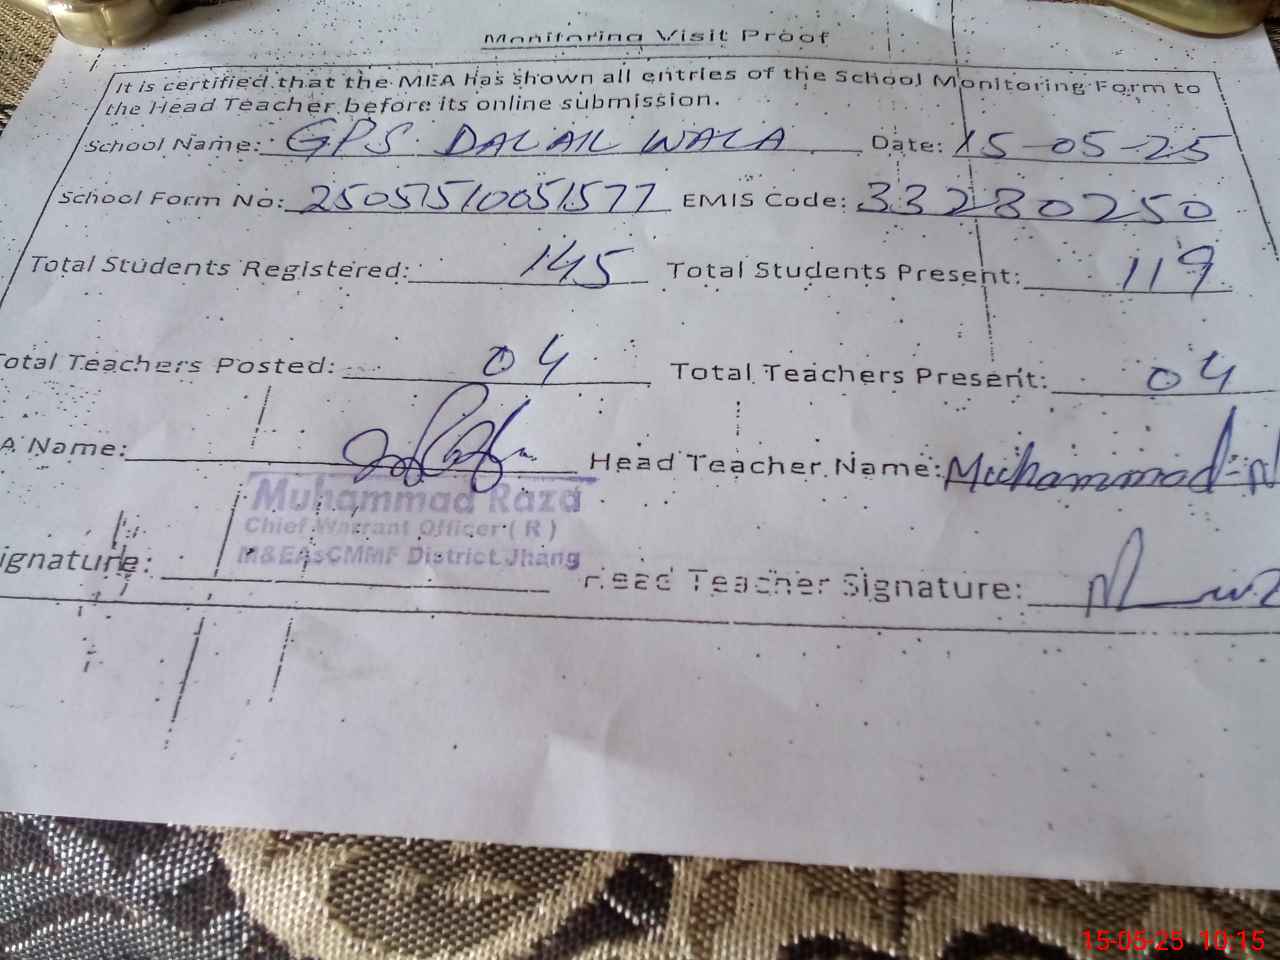 Monitoring Visit Proof
It is certified that the MEA has shown all entries of the School Monitoring Form to
the Head Teacher before its online submission.
School Name: GPS DALAIL WALA Date: 15-05-25
School Form No: 25051510051577 EMIS Code: 33280250
Total Students Registered: 145 Total Students Present: 119
otal Teachers Posted: 04 Total Teachers Present: 04
A Name: Head Teacher Name: Muhammad
Muhammad Raza
Chief Warrant Officer ( R )
M&EAsCMMF District Jhang
ignature: Head Teacher Signature:
15-05-25 10:15